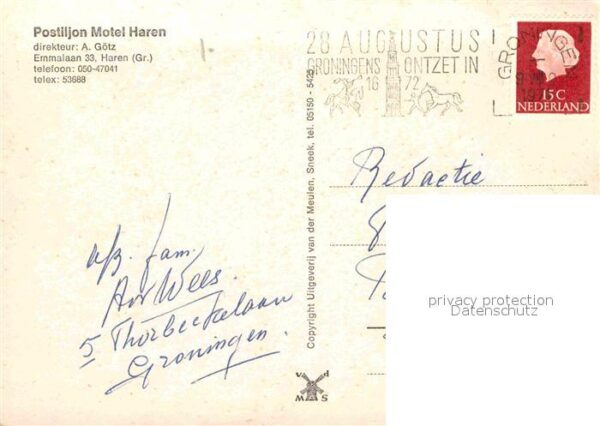 Postiljon Motel Haren
direkteur: A. Götz
Emmalaan 33, Haren (Gr.)
telefoon: 050-47041
telex: 53688
28 AUGUSTUS
GRONINGENS ONTZET IN
16 72
GRONINGEN
15 C
NEDERLAND
Copyright Uitgeverij van der Meulen, Sneek, tel. 05150 - 5429
Redactie
privacy protection
Datenschutz
afz. fam.
A v Wees.
5 Thorbeckelaan
Groningen.
v d
M S